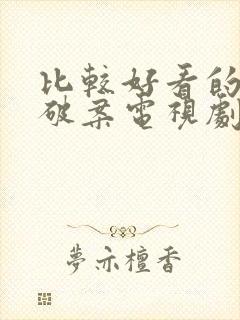 比較好看的
破案電視劇
夢示檀香